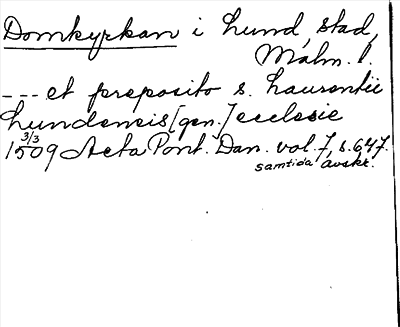 Domkyrkan i Lund, stad,
Malm. l.
--- et preposito s. Laurentii
Lundensis [gen.] ecclesie
3/3
1509 Acta Pont. Dan. vol. 7, s. 647.
samtida avskr.